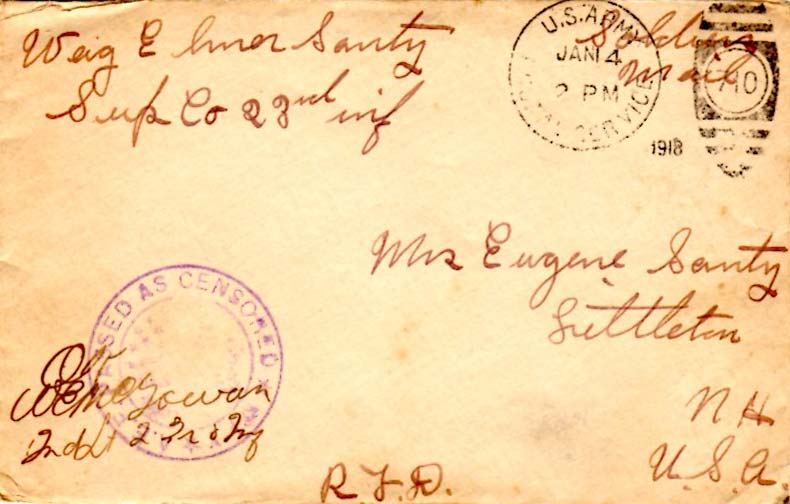 Wag Elmer Santy
Sup Co 23rd inf
Soldiers
Mail
U.S. ARMY
JAN 4
2 PM
POSTAL SERVICE
710
1918
Mrs Eugene Santy
Littleton
NH
U.S.A.
PASSED AS CENSORED
OK
2nd Lt 23rd Inf
R.F.D.